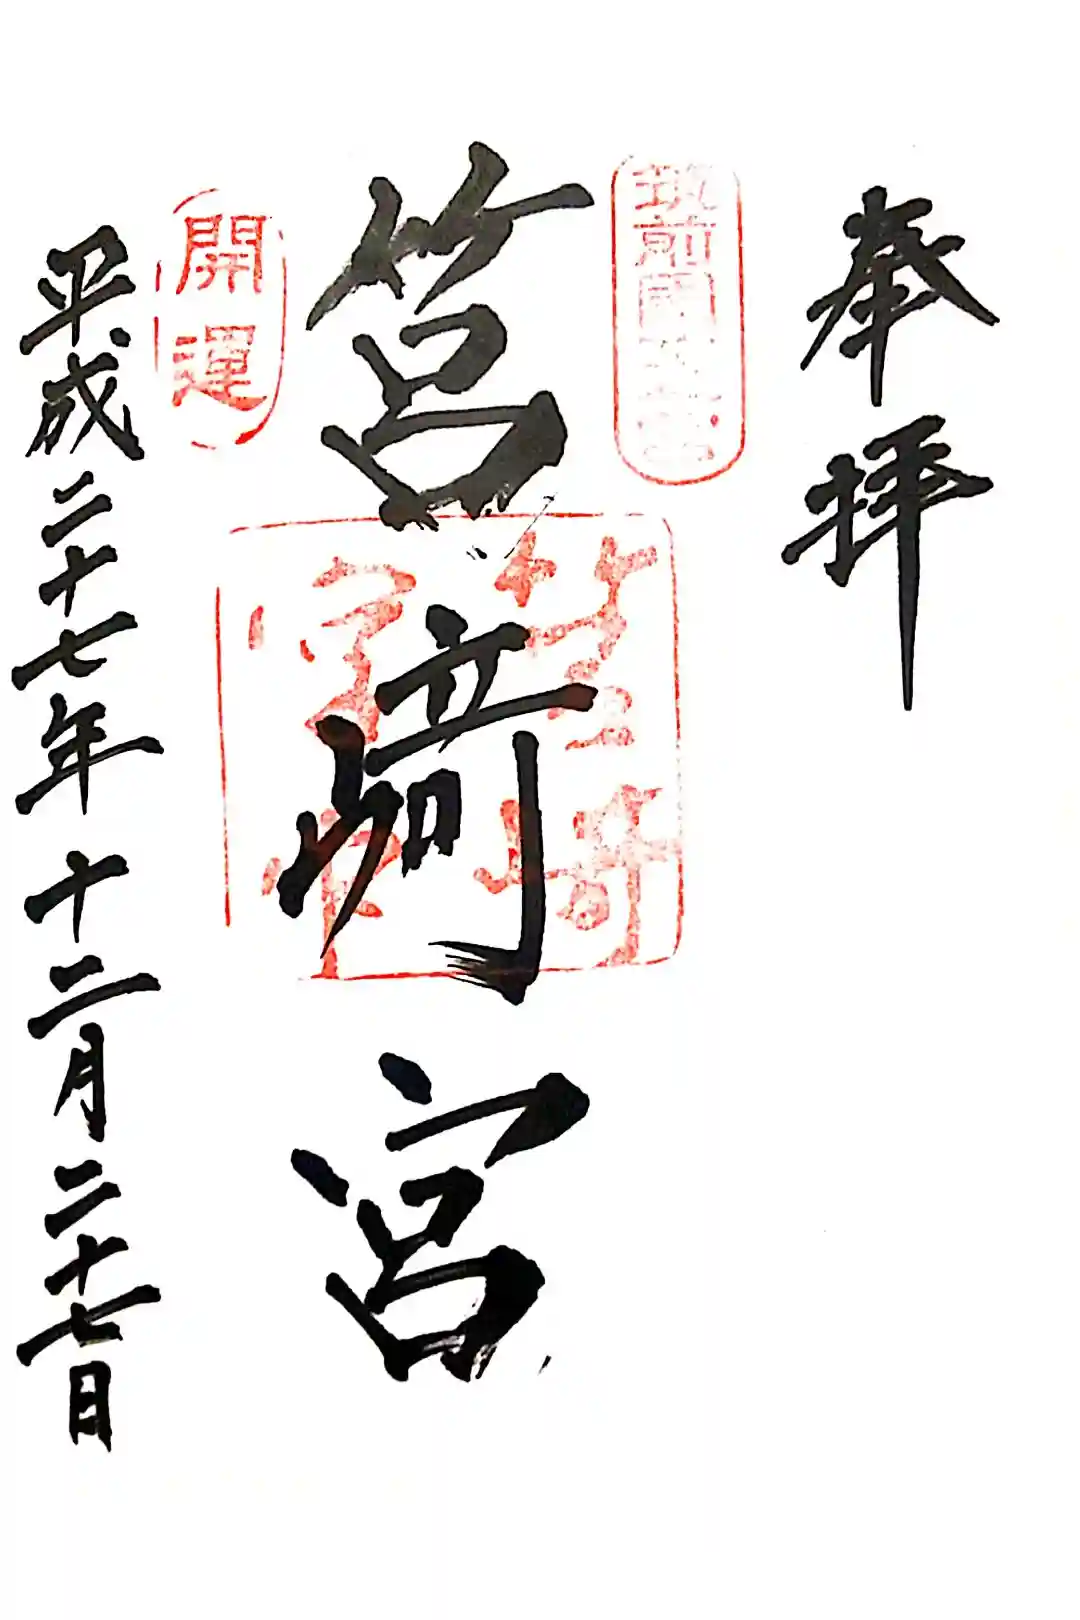 奉拝
筑前國一之宮
筥崎宮
筥崎宮印
開運
平成二十七年十二月二十七日